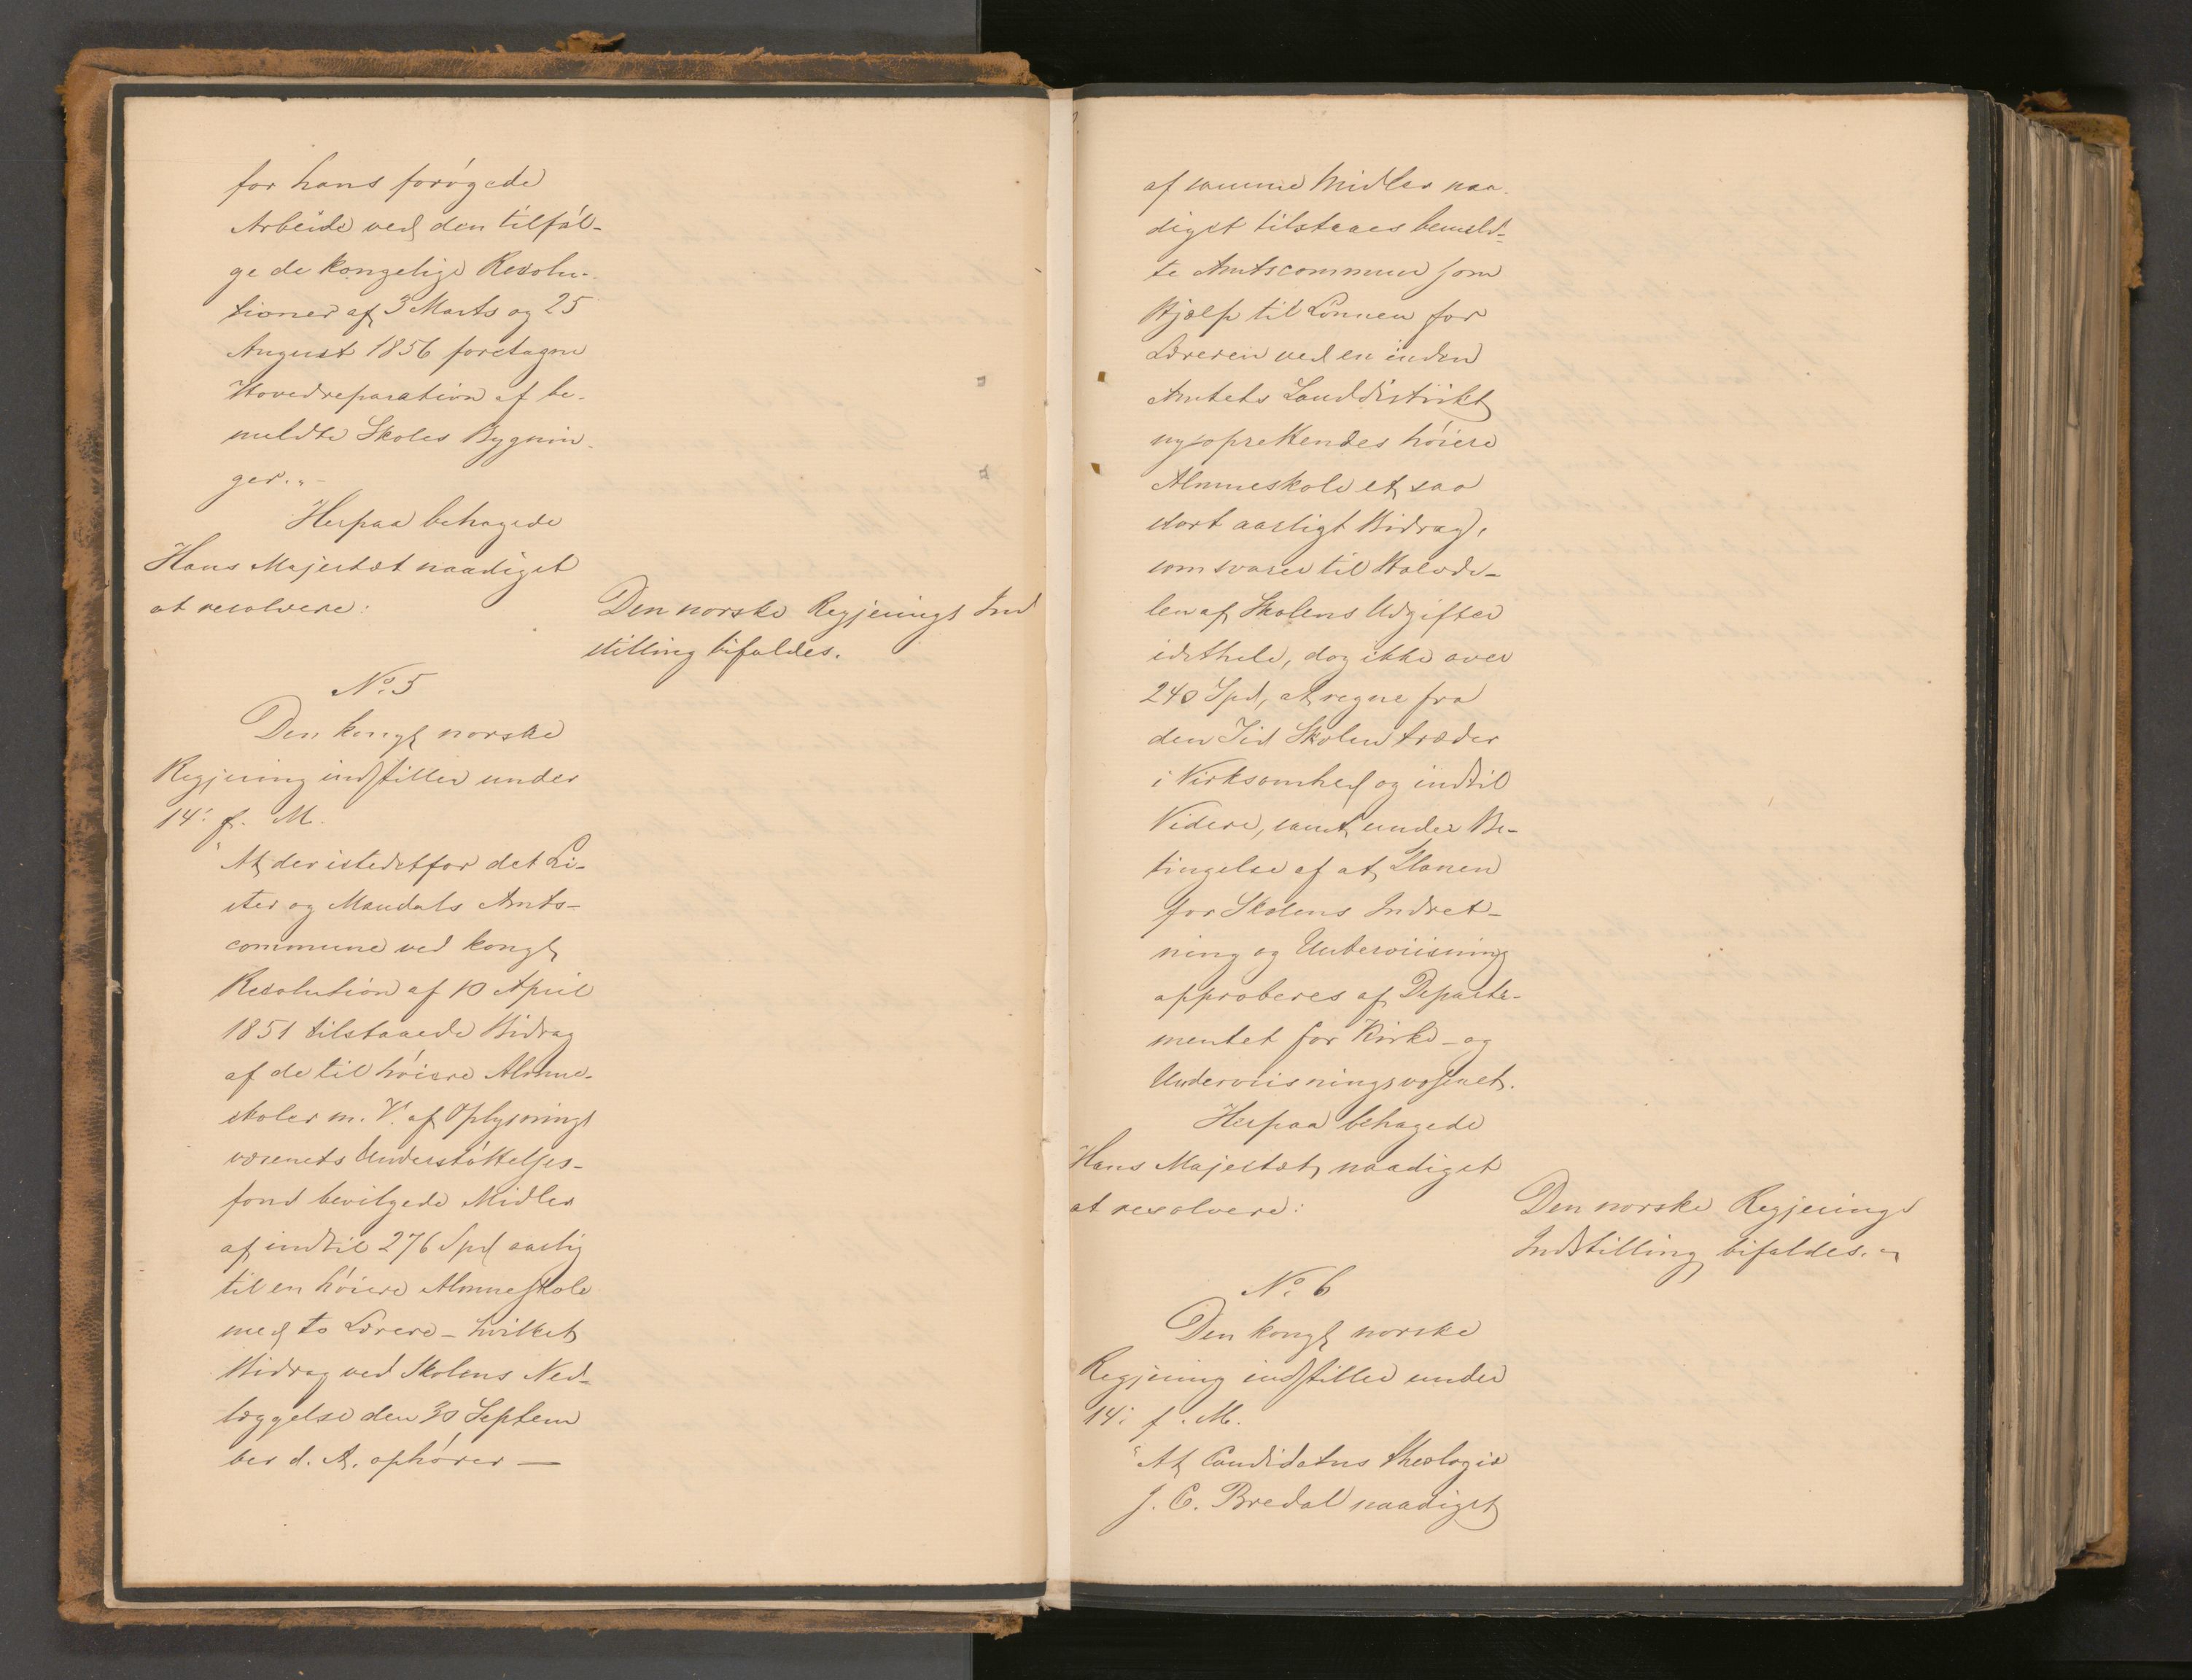 for hans forøgede
Arbeide ved den tilføl-
ge de kongelige Resolu-
tioner af 3 Marts og 25
August 1856 foretagne
Hovedreparation af be-
meldte Skoles Bygnin-
ger."-
Herpaa behagede
Hans Majestæt naadigst
at resolvere:
Den norske Regjerings Ind
stilling bifaldes.
No. 5
Den kongl norske
Regjering indstiller under
14: f. M.
"At der istedetfor det Li-
ster og Mandals Amts-
commune ved kongl
Resolution af 10 April
1851 tilstaaede Bidrag
af de til høiere Almue-
skoler m. V. af Oplysnings
væsenets Understøttelses-
fond bevilgede Midler
af indtil 276 Spd aarlig
til en høiere Almueskole
med to Lærere - hvilket
Bidrag ved Skolens Ned-
læggelse den 30 Septem
ber d. A. ophører —
af samme Midler naa-
digst tilstaaes bemeld-
te Amtscommune som
Hjælp til Lønnen for
Læreren ved en inden
Amtets Landdistrikt
nyoprettendes høiere
Almueskole et saa
stort aarligt Bidrag,
som svarer til Halvde-
len af Skolens Udgifter
idethele, dog ikke over
240 Spd, at regne fra
den Tid Skolen træder
i Virksomhed og indtil
Videre, samt under Be-
tingelse af at Planen
for Skolens Indret-
ning og Underviisning
approberes af Departe-
mentet for Kirke- og
Underviisningsvæsenet.
Herpaa behagede
Hans Majestæt naadigst
at resolvere:
Den norske Regjerings
Indstilling bifaldes."
No. 6
Den kongl norske
Regjering indstiller under
14: f. M.
"At Candidatus theologiæ
J. C. Bredal naadigst